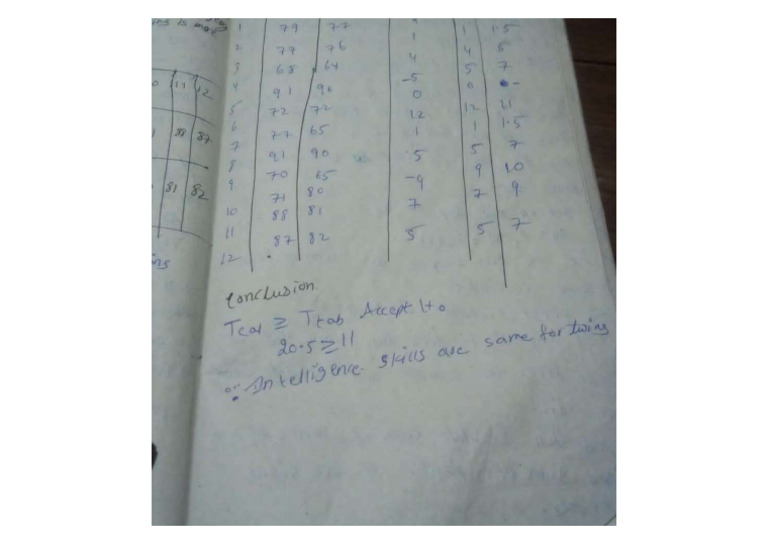 1 79 77 1 1 1.5
2 77 76 4 4 5
3 68 64 -5 5 7
4 91 96 0 0 -
5 72 72 12 12 11
6 77 65 1 1 1.5
7 91 90 5 5 7
8 70 65 -9 9 10
9 71 80 7 7 9
10 88 81
11 87 82 5 5 7
12
11 12
88 87
81 82
Conclusion
Tcal ≥ Ttab Accept H0
20.5 ≥ 11
∴ Intelligence skills are same for twins